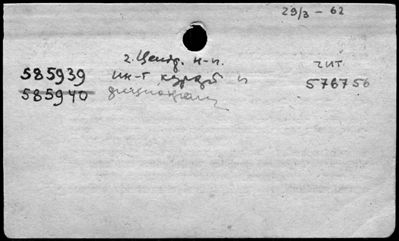 29/3 - 62
2. Центр. н-и.
чит
585939 ин-т курорт и
576756
585940